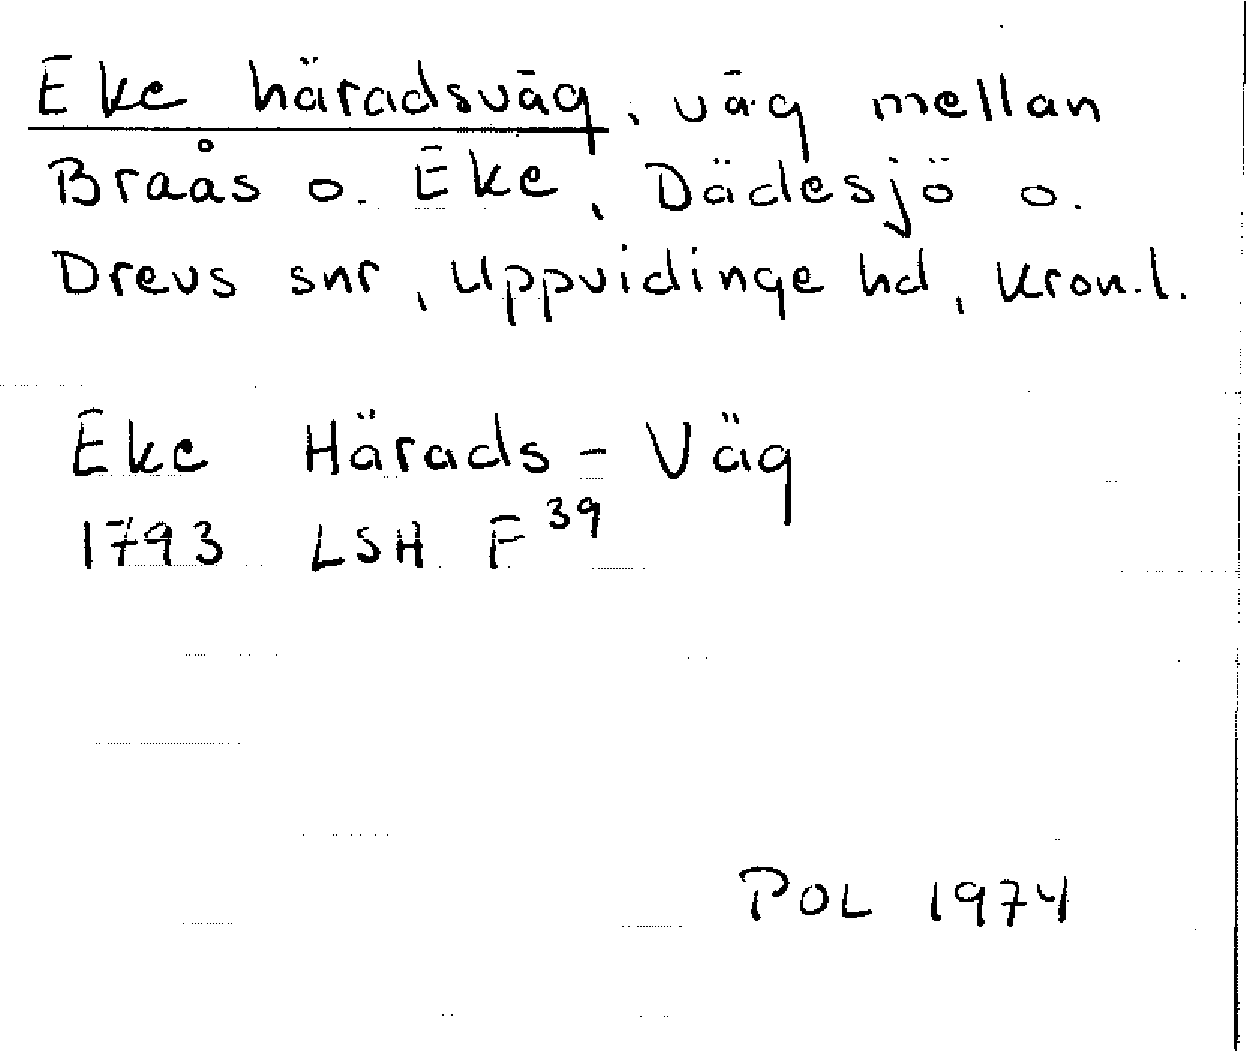 Eke häradsväg, väg mellan
Braås o. Eke, Dädesjö o.
Drevs snr, Uppvidinge hd, Kron.l.
Eke Härads-Väg
1793 LSH F 39
POL 1974